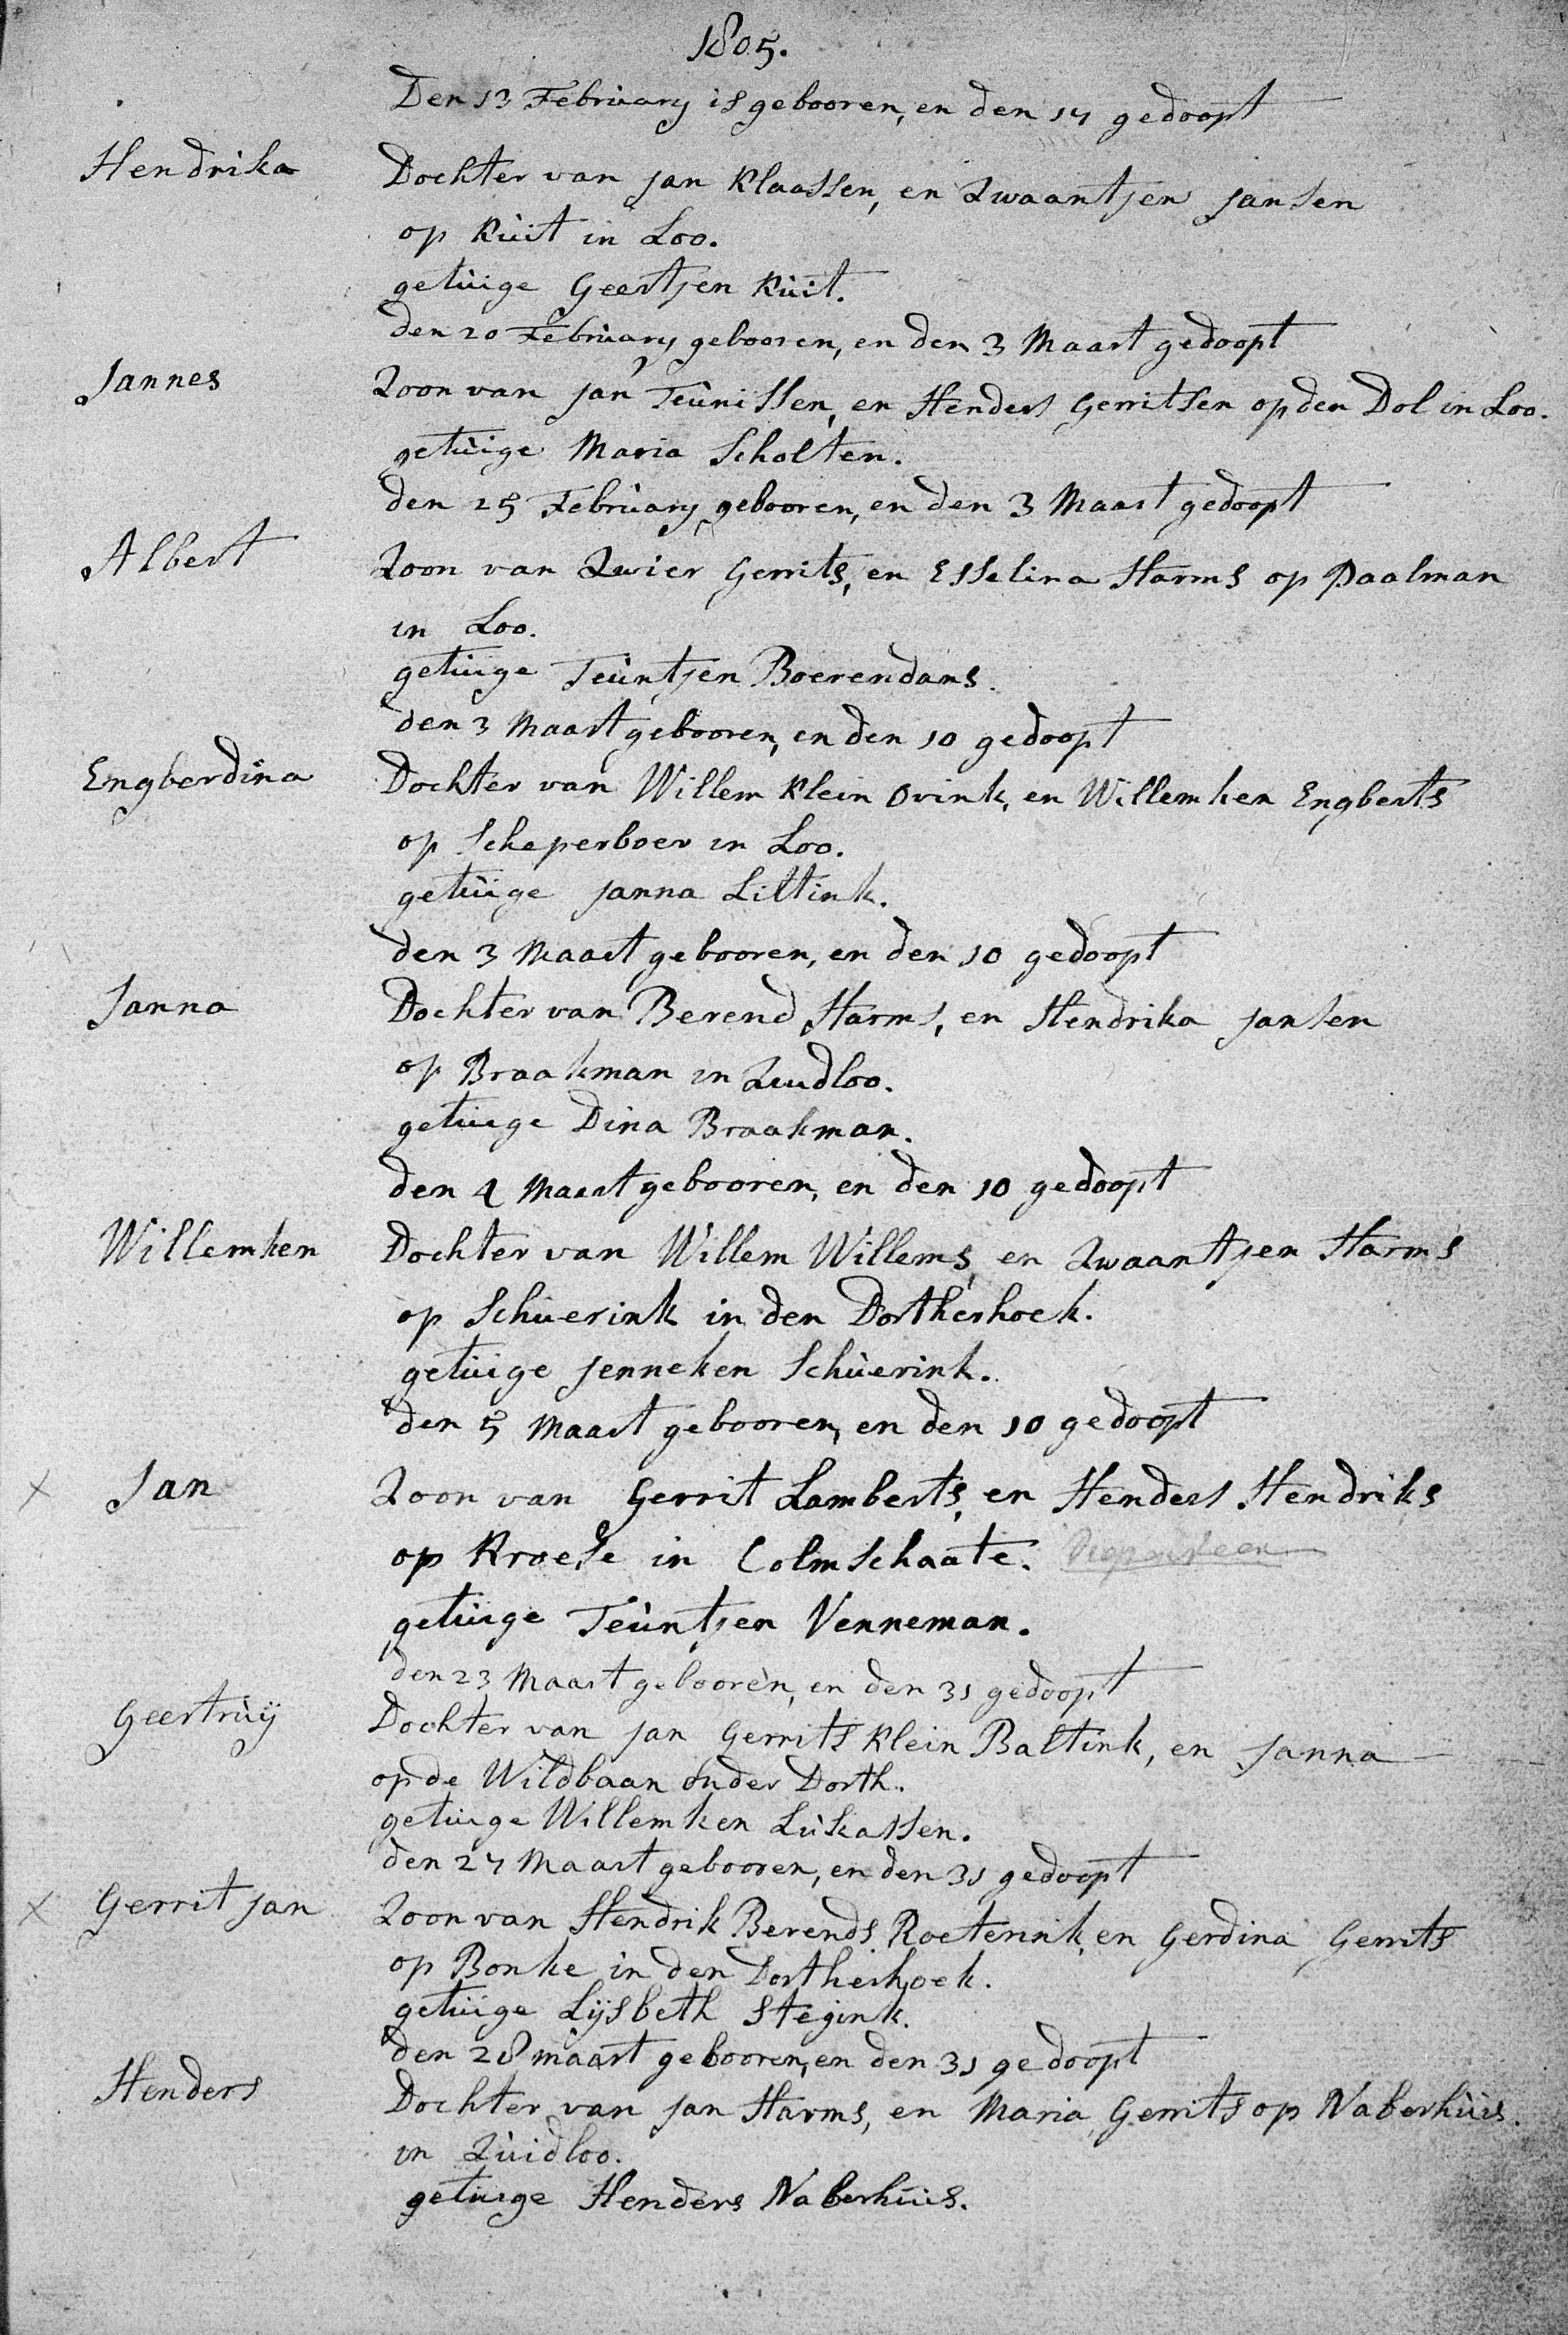 1805.
Den 13 February is gebooren, en den 17 gedoopt
Hendrika Dochter van Jan Klaassen, en Zwaantjen Jansen
op Kuit in Loo.
getuige Geertjen Kuit.
den 20 February gebooren, en den 3 Maart gedoopt
Jannes Zoon van Jan Teunissen, en Henders Gerritsen op den Dol in Loo.
getuige Maria Scholten.
den 25 February gebooren, en den 3 Maart gedoopt
Albert Zoon van Zwier Gerrits, en Esselina Harms op Paalman
in Loo.
getuige Teuntjen Boerendans.
den 3 Maart gebooren, en den 10 gedoopt
Engberdina Dochter van Willem Klein Ovink, en Willemken Engberts
op Scheperboer in Loo.
getuige Janna Littink.
den 3 Maart gebooren, en den 10 gedoopt
Janna Dochter van Berend Harms, en Hendrika Jansen
op Braakman in Zuidloo.
getuige Dina Braakman.
den 4 Maart gebooren, en den 10 gedoopt
Willemken Dochter van Willem Willems, en Zwaantjen Harms
op Schuerink in den Dortherhoek.
getuige Jenneken Schuerink.
den 5 Maart gebooren, en den 10 gedoopt
x Jan Zoon van Gerrit Lamberts, en Henders Hendriks
op Kroese in Colmschaate.
getuige Teuntjen Venneman.
den 23 Maart gebooren, en den 31 gedoopt
Geertruij Dochter van Jan Gerrits Klein Baltink, en Janna —
op de Wildbaan onder Dorth.
getuige Willemken Lukassen.
den 27 Maart gebooren, en den 31 gedoopt
x Gerrit Jan Zoon van Hendrik Berends Roeterink, en Gerdina Gerrits
op Bonke in den Dortherhoek.
getuige Lijsbeth Stegink.
den 28 maart gebooren, en den 31 gedoopt
Henders Dochter van Jan Harms, en Maria Gerrits op Naberhuis
in Zuidloo.
getuige Henders Naberhuis.